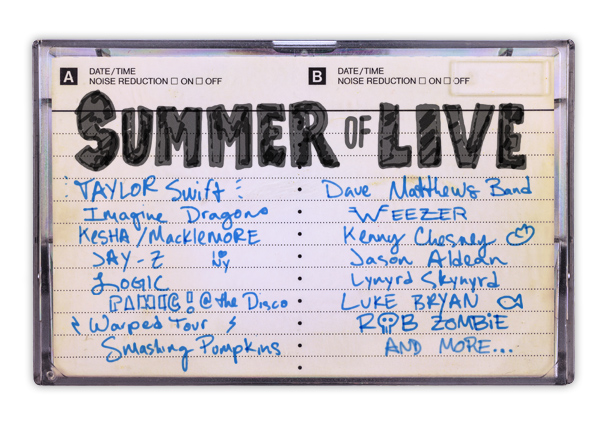 A DATE/TIME
NOISE REDUCTION ☐ ON ☐ OFF
B DATE/TIME
NOISE REDUCTION ☐ ON ☐ OFF
SUMMER OF LIVE
TAYLOR Swift
Imagine Dragons
KESHA/MACKLEMORE
JAY-Z I♥NY
LOGIC
PANIC! @ the Disco
Warped Tour
Smashing Pumpkins
Dave Matthews Band
WEEZER
Kenny Chesney
Jason Aldean
Lynyrd Skynyrd
LUKE BRYAN
ROB ZOMBiE
AND MORE...